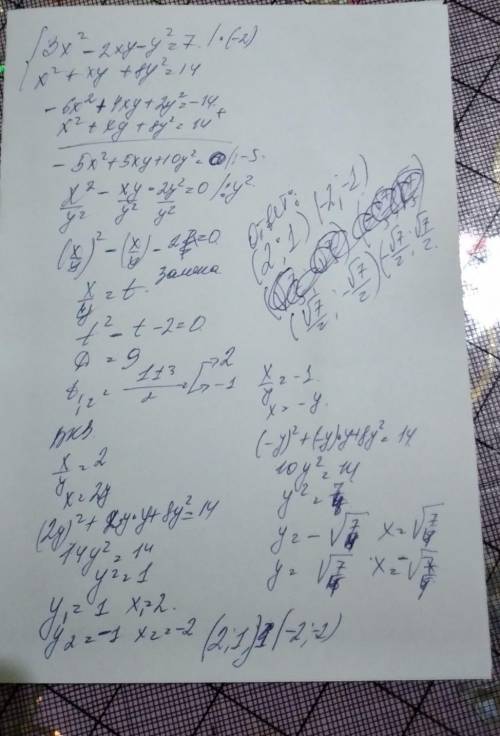 { 3x² - 2xy - y² = 7 | · (-2)
x² + xy + 8y² = 14
- 6x² + 4xy + 2y² = -14 +
x² + xy + 8y² = 14
- 5x² + 5xy + 10y² = 0 | : -5
x²/y² - xy/y² - 2y²/y² = 0 | : y²
(x/y)² - (x/y) - 2 = 0
Замена
x/y = t
t² - t - 2 = 0
D = 9
t₁,₂ = (1±3)/2 → 2
→ -1
ВКЗ
x/y = 2
x = 2y
(2y)² + 2y·y + 8y² = 14
14y² = 14
y² = 1
y₁ = 1 x₁ = 2
y₂ = -1 x₂ = -2 (2; 1) (-2; -1)
x/y = -1
x = -y
(-y)² + (-y)·y + 8y² = 14
10y² = 14
y² = 7/4
y = - √7/4 x = √7/4
y = √7/4 x = - √7/4
Ответ:
(2; 1) (-2; -1)
(√7/2; -√7/2) (-√7/2; √7/2)